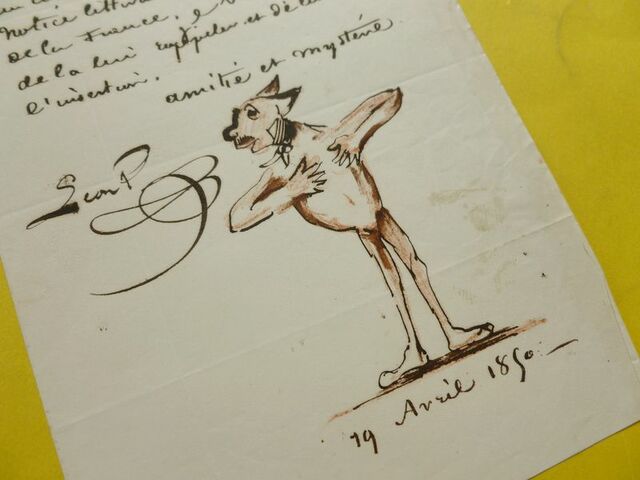 notice littér
de la France, e
de la lui rappeler et de l
l'insertion.
amitié et mystère
Léon P
19 Avril 1850